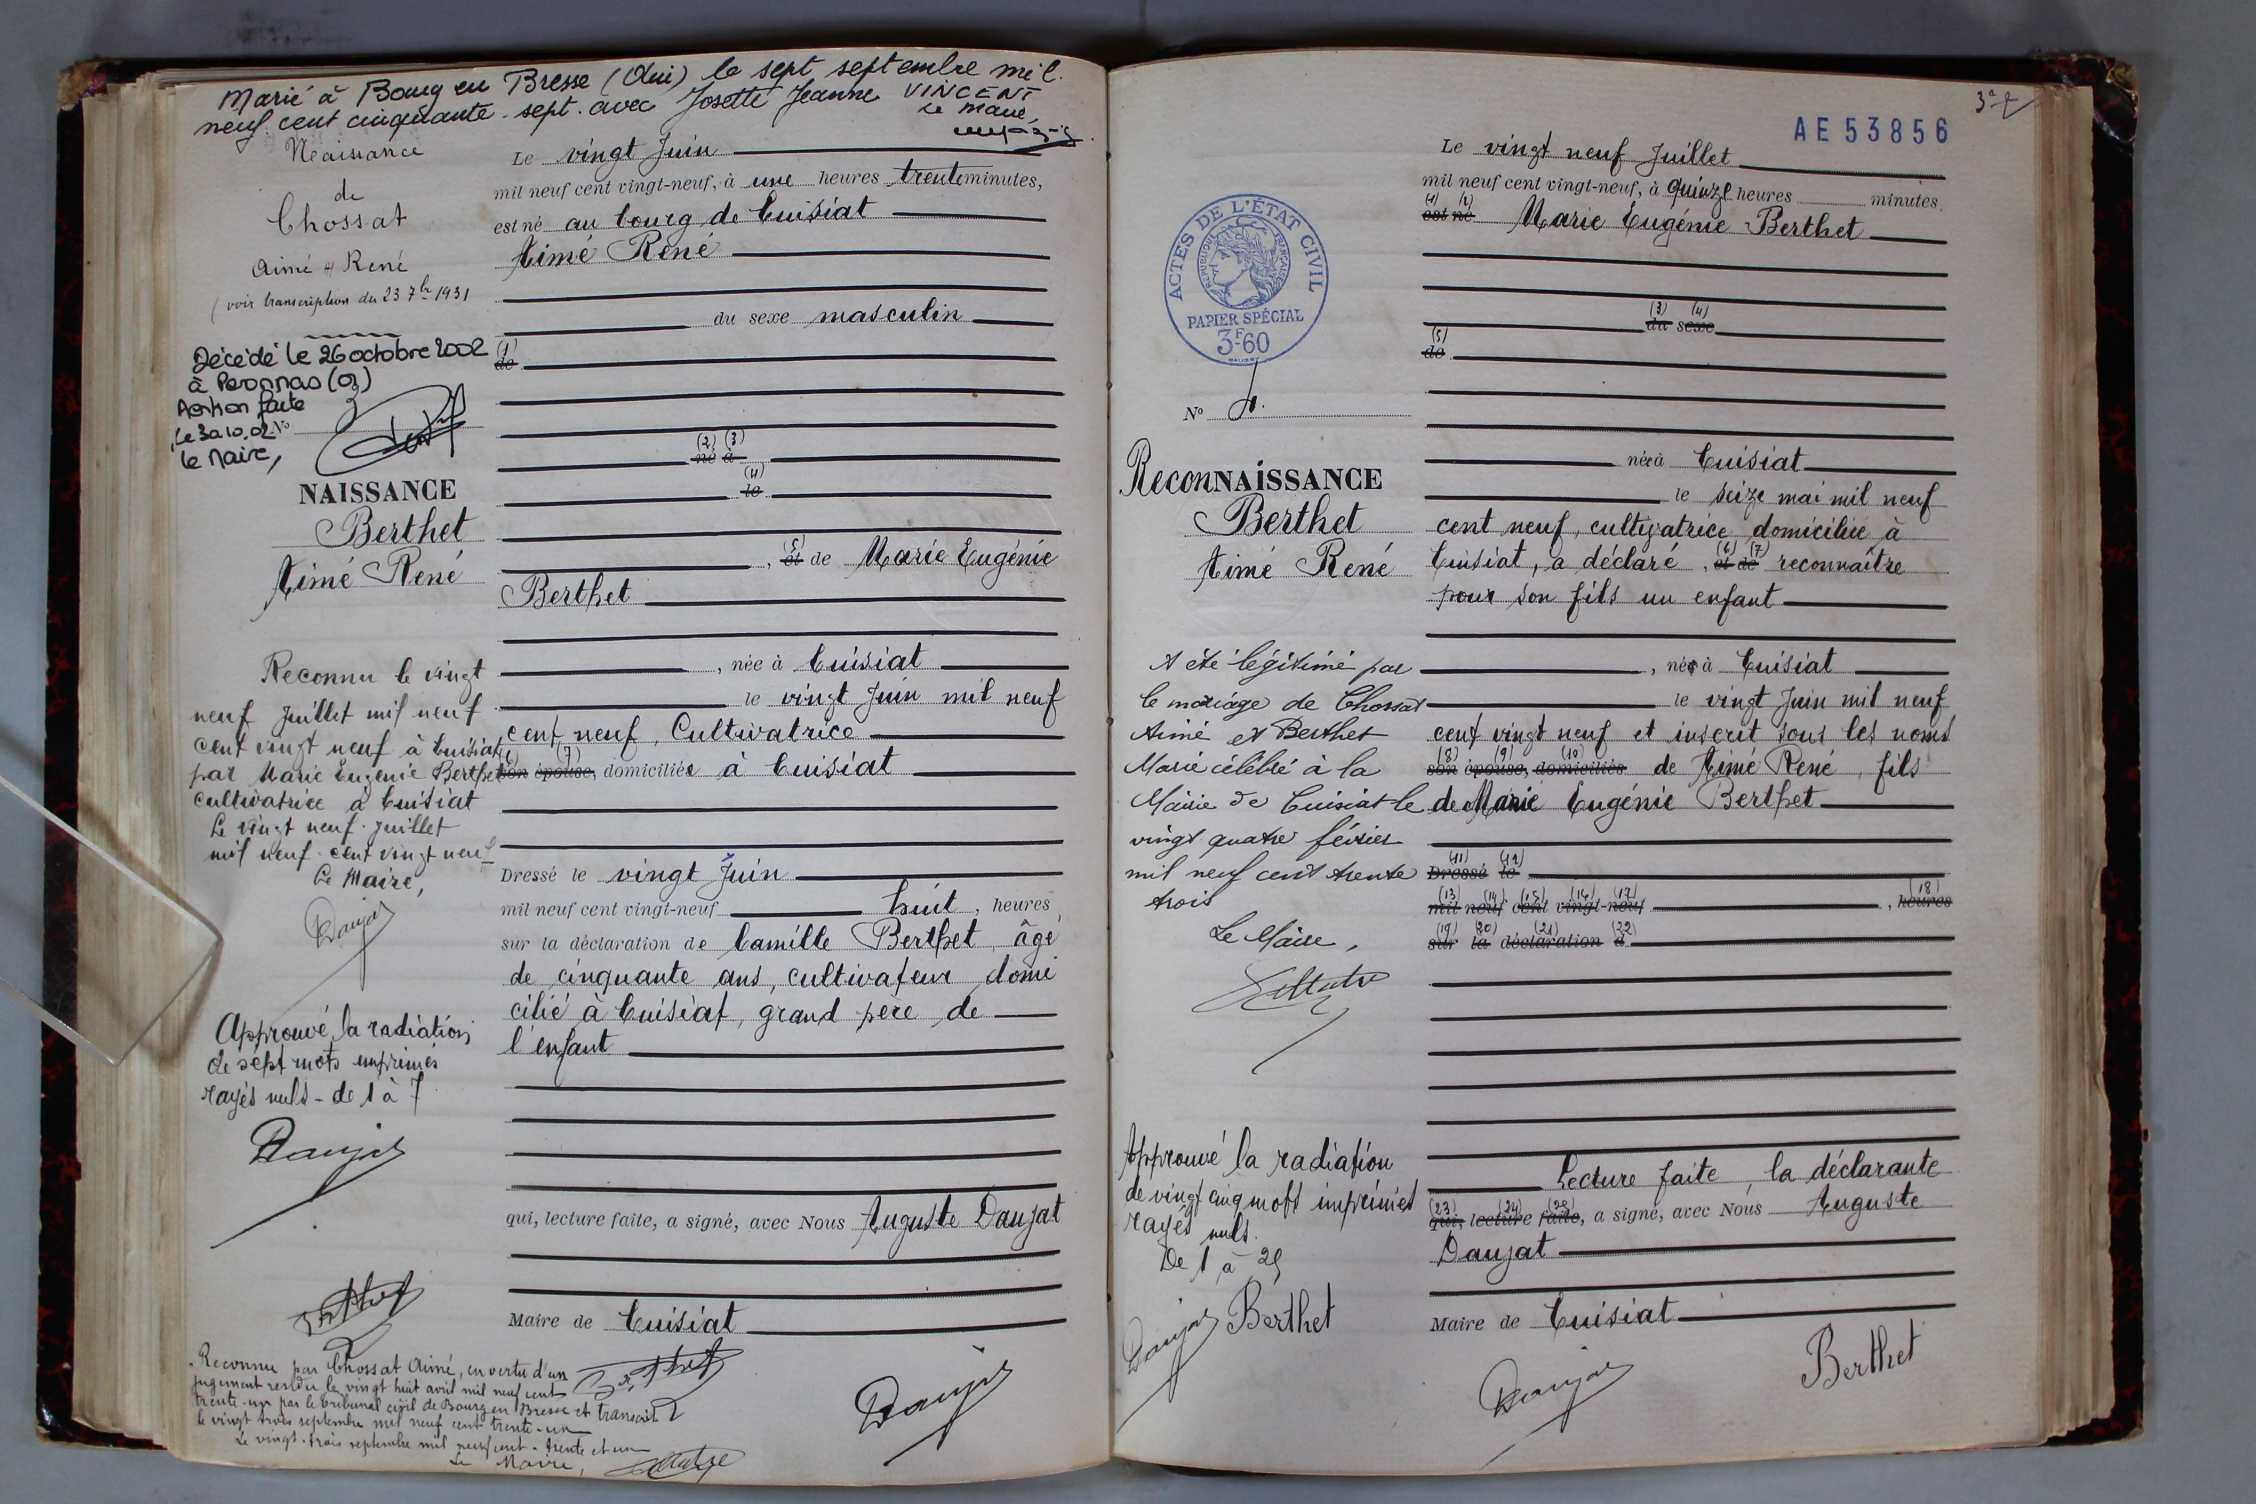 Marié à Bourg en Bresse (Ain) le sept septembre mil
neuf cent cinquante-sept avec Josette Jeanne VINCENT
Le Maire,
Naissance
de
Chossat
Aimé René
(voir transcription du 23 7bre 1931
Décédé le 26 octobre 2002
à Peronnas (01)
le 30.10.02
N°
Le Maire,
NAISSANCE
Berthet
Aimé René
Reconnu le vingt
neuf Juillet mil neuf
cent vingt neuf à Cuisiat
par Marie Eugénie Berthet
cultivatrice à Cuisiat
Le vingt neuf Juillet
mil neuf cent vingt neuf
Le Maire,
Daujat
Approuvé la radiation
de sept mots imprimés
rayés nuls - de 1 à 7
Daujat
Berthet
Reconnu par Chossat Aimé, en vertu d'un
jugement rendu le vingt huit avril mil neuf cent
trente-un par le tribunal civil de Bourg en Bresse et transcrit
le vingt trois septembre mil neuf cent trente-un
Le vingt-trois septembre mil neuf cent-trente et un
Le Maire,
Le vingt Juin
mil neuf cent vingt-neuf, à une heures trente minutes,
est né au bourg de Cuisiat
Aimé René
du sexe masculin
(1)
de
(2) (3)
né à
(4)
le
(5)
, et de Marie Eugénie
Berthet
, née à Cuisiat
le vingt Juin mil neuf
cent neuf, Cultivatrice
(6) (7)
son épouse, domiciliée à Cuisiat
Dressé le vingt Juin
mil neuf cent vingt-neuf huit, heures
sur la déclaration de Camille Berthet, âgé
de cinquante ans, cultivateur domi
cilié à Cuisiat, grand père de
l'enfant
qui, lecture faite, a signé, avec Nous Auguste Daujat
Maire de Cuisiat
Berthet
Daujat
AE 53856
ACTES DE L'ÉTAT CIVIL
RÉPUBLIQUE FRANÇAISE
PAPIER SPÉCIAL
3F60
N°
ReconNAISSANCE
Berthet
Aimé René
A été légitimé par
le mariage de Chossat
Aimé et Berthet
Marie célébré à la
Mairie de Cuisiat le
vingt quatre février
mil neuf cent trente
trois
Le Maire,
Approuvé la radiation
de vingt cinq mots imprimés
rayés nuls.
De 1 à 25
Daujat Berthet
Le vingt neuf Juillet
mil neuf cent vingt-neuf, à quinze heures minutes.
(1) (2)
est né Marie Eugénie Berthet
(3) (4)
du sexe
(5)
de
née à Cuisiat
le seize mai mil neuf
cent neuf, cultivatrice domiciliée à
(6) (7)
Cuisiat, a déclaré, et de reconnaître
pour son fils un enfant
, né à Cuisiat
le vingt Juin mil neuf
cent vingt neuf et inscrit sous les noms
(8) (9) (10)
son épouse, domiciliés de Aimé René, fils
de Marie Eugénie Berthet
(11) (12)
Dressé le
(13) (14) (15) (16) (17) (18)
mil neuf cent vingt-neuf , heures
(19) (20) (21) (22)
sur la déclaration d
Lecture faite, la déclarante
(23) (24) (25)
qui, lecture faite, a signé, avec Nous Auguste
Daujat
Maire de Cuisiat
Daujat
Berthet